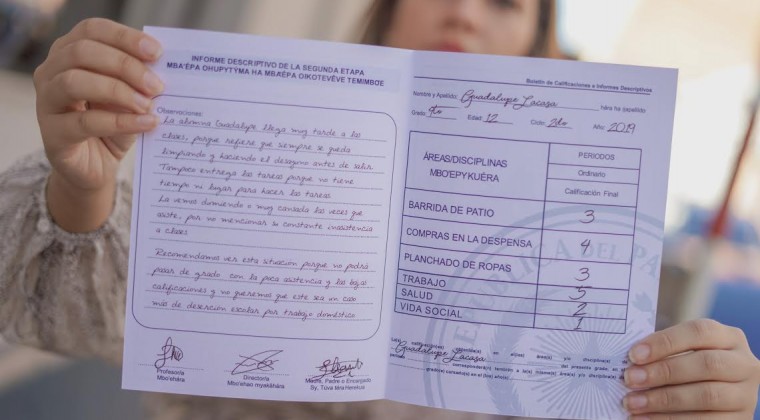 INFORME DESCRIPTIVO DE LA SEGUNDA ETAPA
MBA'ÉPA OHUPYTÝMA HA MBA'ÉPA OIKOTEVẼVE TEMIMBOE
Observaciones:
La alumna Guadalupe llega muy tarde a las
clases, porque refiere que siempre se queda
limpiando y haciendo el desayuno antes de salir
Tampoco entrega las tareas porque no tiene
tiempo ni lugar para hacer las tareas.
La vemos durmiendo o muy cansada las veces que
asiste, por no mencionar su constante inasistencia
a clases
Recomendamos ver esta situación porque no podrá
pasar de grado con la poca asistencia y las bajas
calificaciones y no queremos que este sea un caso
más de deserción escolar por trabajo doméstico
Profesor/a
Mbo'ehára
Director/a
Mbo'ehao myakãhára
Madre, Padre o Encargado
Sy, Túva térã Henohue
Boletín de Calificaciones e Informes Descriptivos
Nombre y Apellido: Guadalupe Lacasa
Grado: Edad: 12 Ciclo: 3do Año: 2019
ÁREAS/DISCIPLINAS
MBO'EPYKUÉRA
PERIODOS
Ordinario
Calificación Final
BARRIDA DE PATIO 3
COMPRAS EN LA DESPENSA 4
PLANCHADO DE ROPAS 3
TRABAJO 5
SALUD 2
VIDA SOCIAL 1
REPÚBLICA DEL PA
Guadalupe Lacasa